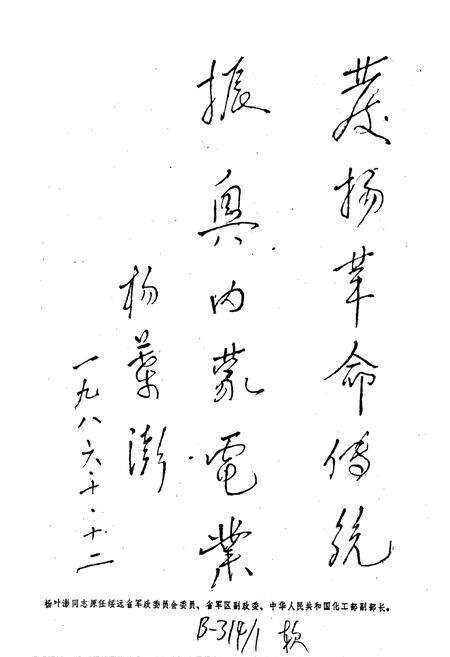 發扬革命傳统
振興内蒙電業
杨葉澎
一九八六·十·十二
杨叶澎同志原任绥远省军政委员会委员、省军区副政委、中华人民共和国化工部副部长。
B-314/1 软